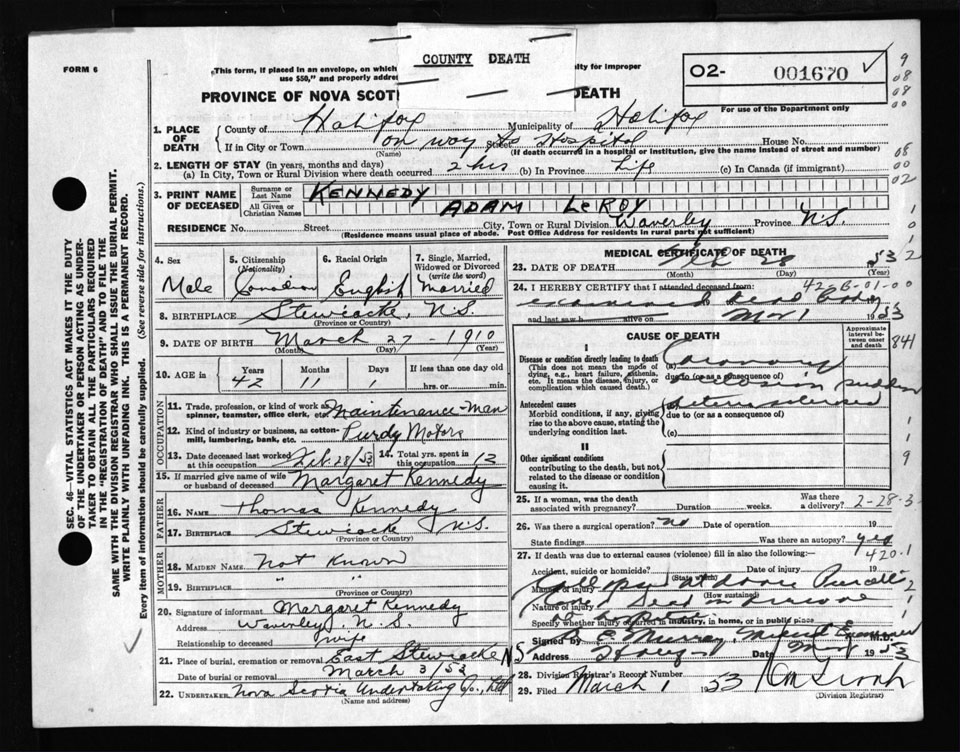 COUNTY DEATH
FORM 6
This form, if placed in an envelope, on which
use $50," and properly addre
lty for improper
O2- 001670
PROVINCE OF NOVA SCOT
DEATH
For use of the Department only
1. PLACE OF DEATH County of Halifax Municipality of Halifax
If in City or Town on way to Hospital Street House No.
(Name) (If death occurred in a hospital or institution, give the name instead of street and number)
2. LENGTH OF STAY (in years, months and days)
(a) In City, Town or Rural Division where death occurred 2 hrs (b) In Province Life (c) In Canada (if immigrant)
3. PRINT NAME OF DECEASED Surname or Last Name KENNEDY
All Given or Christian Names ADAM LEROY
RESIDENCE No. Street City, Town or Rural Division Waverley Province N.S.
(Residence means usual place of abode. Post Office Address for residents in rural parts not sufficient)
4. Sex Male
5. Citizenship (Nationality) Canadian
6. Racial Origin English
7. Single, Married, Widowed or Divorced (write the word) Married
8. BIRTHPLACE Stewiacke, N.S.
(Province or Country)
9. DATE OF BIRTH March 27 - 1910
(Month) (Day) (Year)
10. AGE in Years 42 Months 11 Days 1 If less than one day old
hrs. or min.
OCCUPATION
11. Trade, profession, or kind of work as spinner, teamster, office clerk, etc. Maintenance-Man
12. Kind of industry or business, as cotton-mill, lumbering, bank, etc. Purdy Motors
13. Date deceased last worked at this occupation Feb. 28/53 14. Total yrs. spent in this occupation 12
15. If married give name of wife or husband of deceased Margaret Kennedy
FATHER
16. NAME Thomas Kennedy
17. BIRTHPLACE Stewiacke N.S.
(Province or Country)
MOTHER
18. MAIDEN NAME Not Known
19. BIRTHPLACE " "
(Province or Country)
20. Signature of informant Margaret Kennedy
Address Waverley, N.S.
Relationship to deceased wife
21. Place of burial, cremation or removal East Stewiacke N S
Date of burial or removal March 3/53
22. UNDERTAKER Nova Scotia Undertaking Co., Ltd
(Name and address)
MEDICAL CERTIFICATE OF DEATH
23. DATE OF DEATH Feb 28 1953
(Month) (Day) (Year)
24. I HEREBY CERTIFY that I attended deceased from:
420B-01-00
examined dead body
and last saw h alive on Mar 1 1953
CAUSE OF DEATH
Approximate interval between onset and death
I
Disease or condition directly leading to death (a) Coronary
(This does not mean the mode of dying, e.g., heart failure, asthenia, etc. It means the disease, injury, or complication which caused death.)
due to (or as a consequence of) sudden
Antecedent causes
Morbid conditions, if any, giving rise to the above cause, stating the underlying condition last.
due to (or as a consequence of)
(c)
II
Other significant conditions
contributing to the death, but not related to the disease or condition causing it.
25. If a woman, was the death associated with pregnancy? Duration weeks. Was there a delivery?
2-28-3
26. Was there a surgical operation? no Date of operation 19
State findings Was there an autopsy? yes
420.1
27. If death was due to external causes (violence) fill in also the following:
Accident, suicide or homicide? Date of injury 19
(State which)
Manner of injury
(How sustained)
Nature of injury
Specify whether injury occurred in industry, in home, or in public place
Signed by Murray, Medical Examiner M.D.
Address Date Mar 1 1953
28. Division Registrar's Record Number
29. Filed March 1 53
(Division Registrar)
SEC. 46-VITAL STATISTICS ACT MAKES IT THE DUTY
OF THE UNDERTAKER OR PERSON ACTING AS UNDER-
TAKER TO OBTAIN ALL THE PARTICULARS REQUIRED
IN THE "REGISTRATION OF DEATH" AND TO FILE THE
SAME WITH THE DIVISION REGISTRAR WHO SHALL ISSUE THE BURIAL PERMIT.
WRITE PLAINLY WITH UNFADING INK. THIS IS A PERMANENT RECORD.
Every item of information should be carefully supplied. (See reverse side for instructions.)